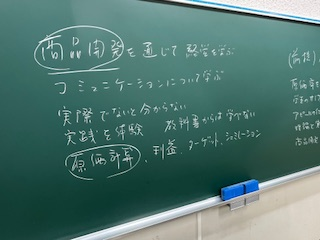 商品開発を通じて経営を学ぶ
コミュニケーションについて学ぶ
実際でないと分からない
実践を体験 教科書からは学べない
原価計算、利益、ターゲット、シミュレーション
(前提)
原価率を